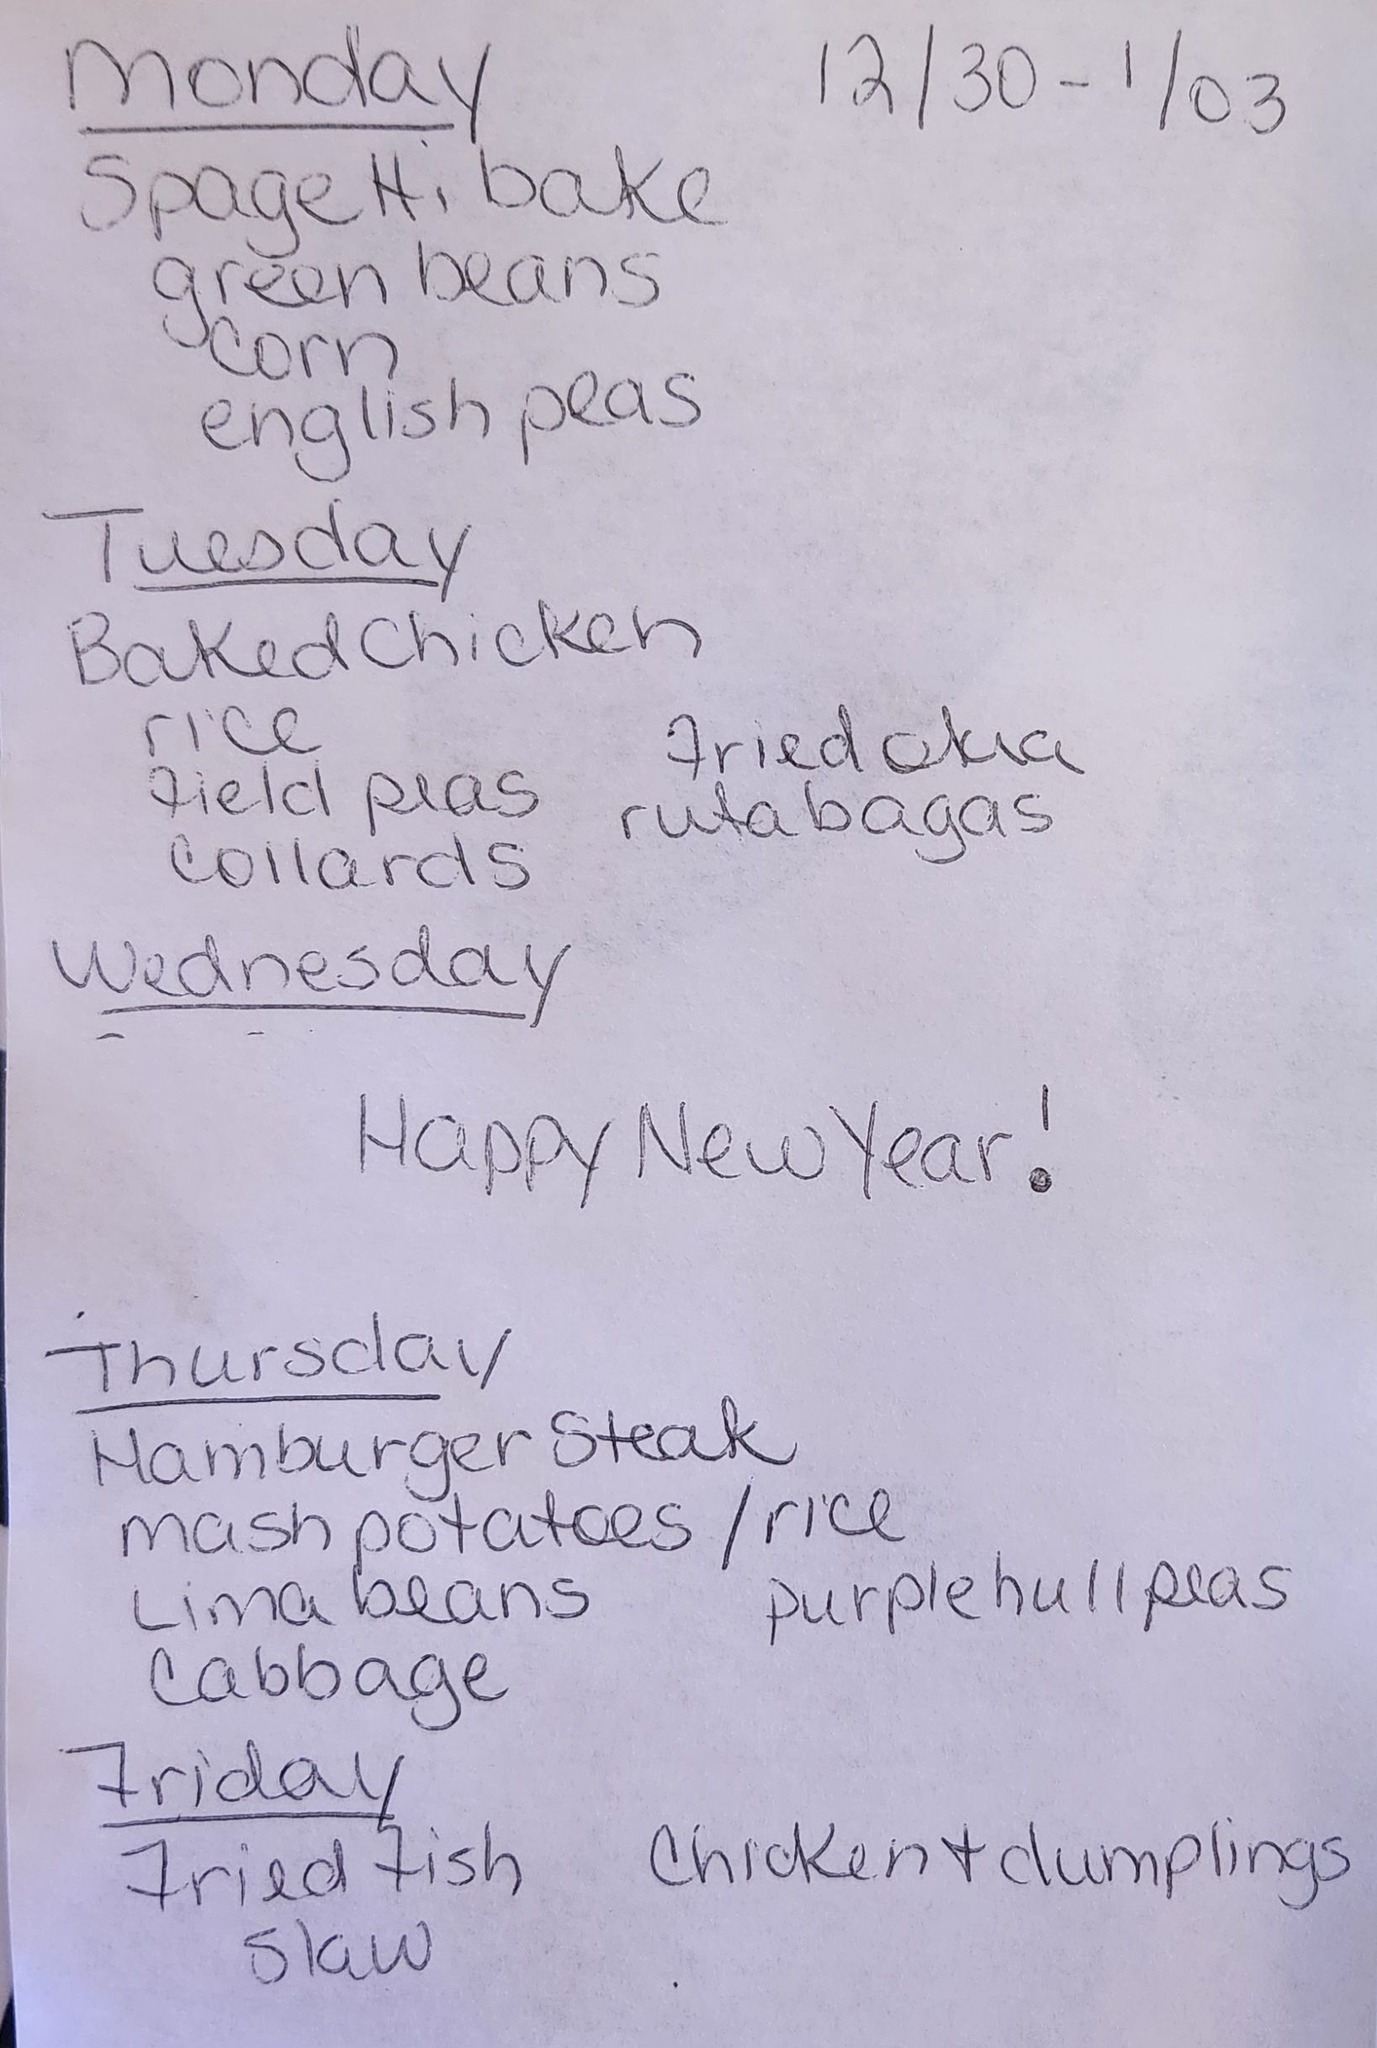 Monday 12/30 - 1/03
Spagetti bake
green beans
corn
english peas
Tuesday
Baked Chicken
rice
Fried okra
Field peas
rutabagas
Collards
Wednesday
Happy New Year!
Thursday
Hamburger Steak
mash potatoes / rice
Lima beans
purple hull peas
Cabbage
Friday
Fried Fish
Chicken + dumplings
Slaw